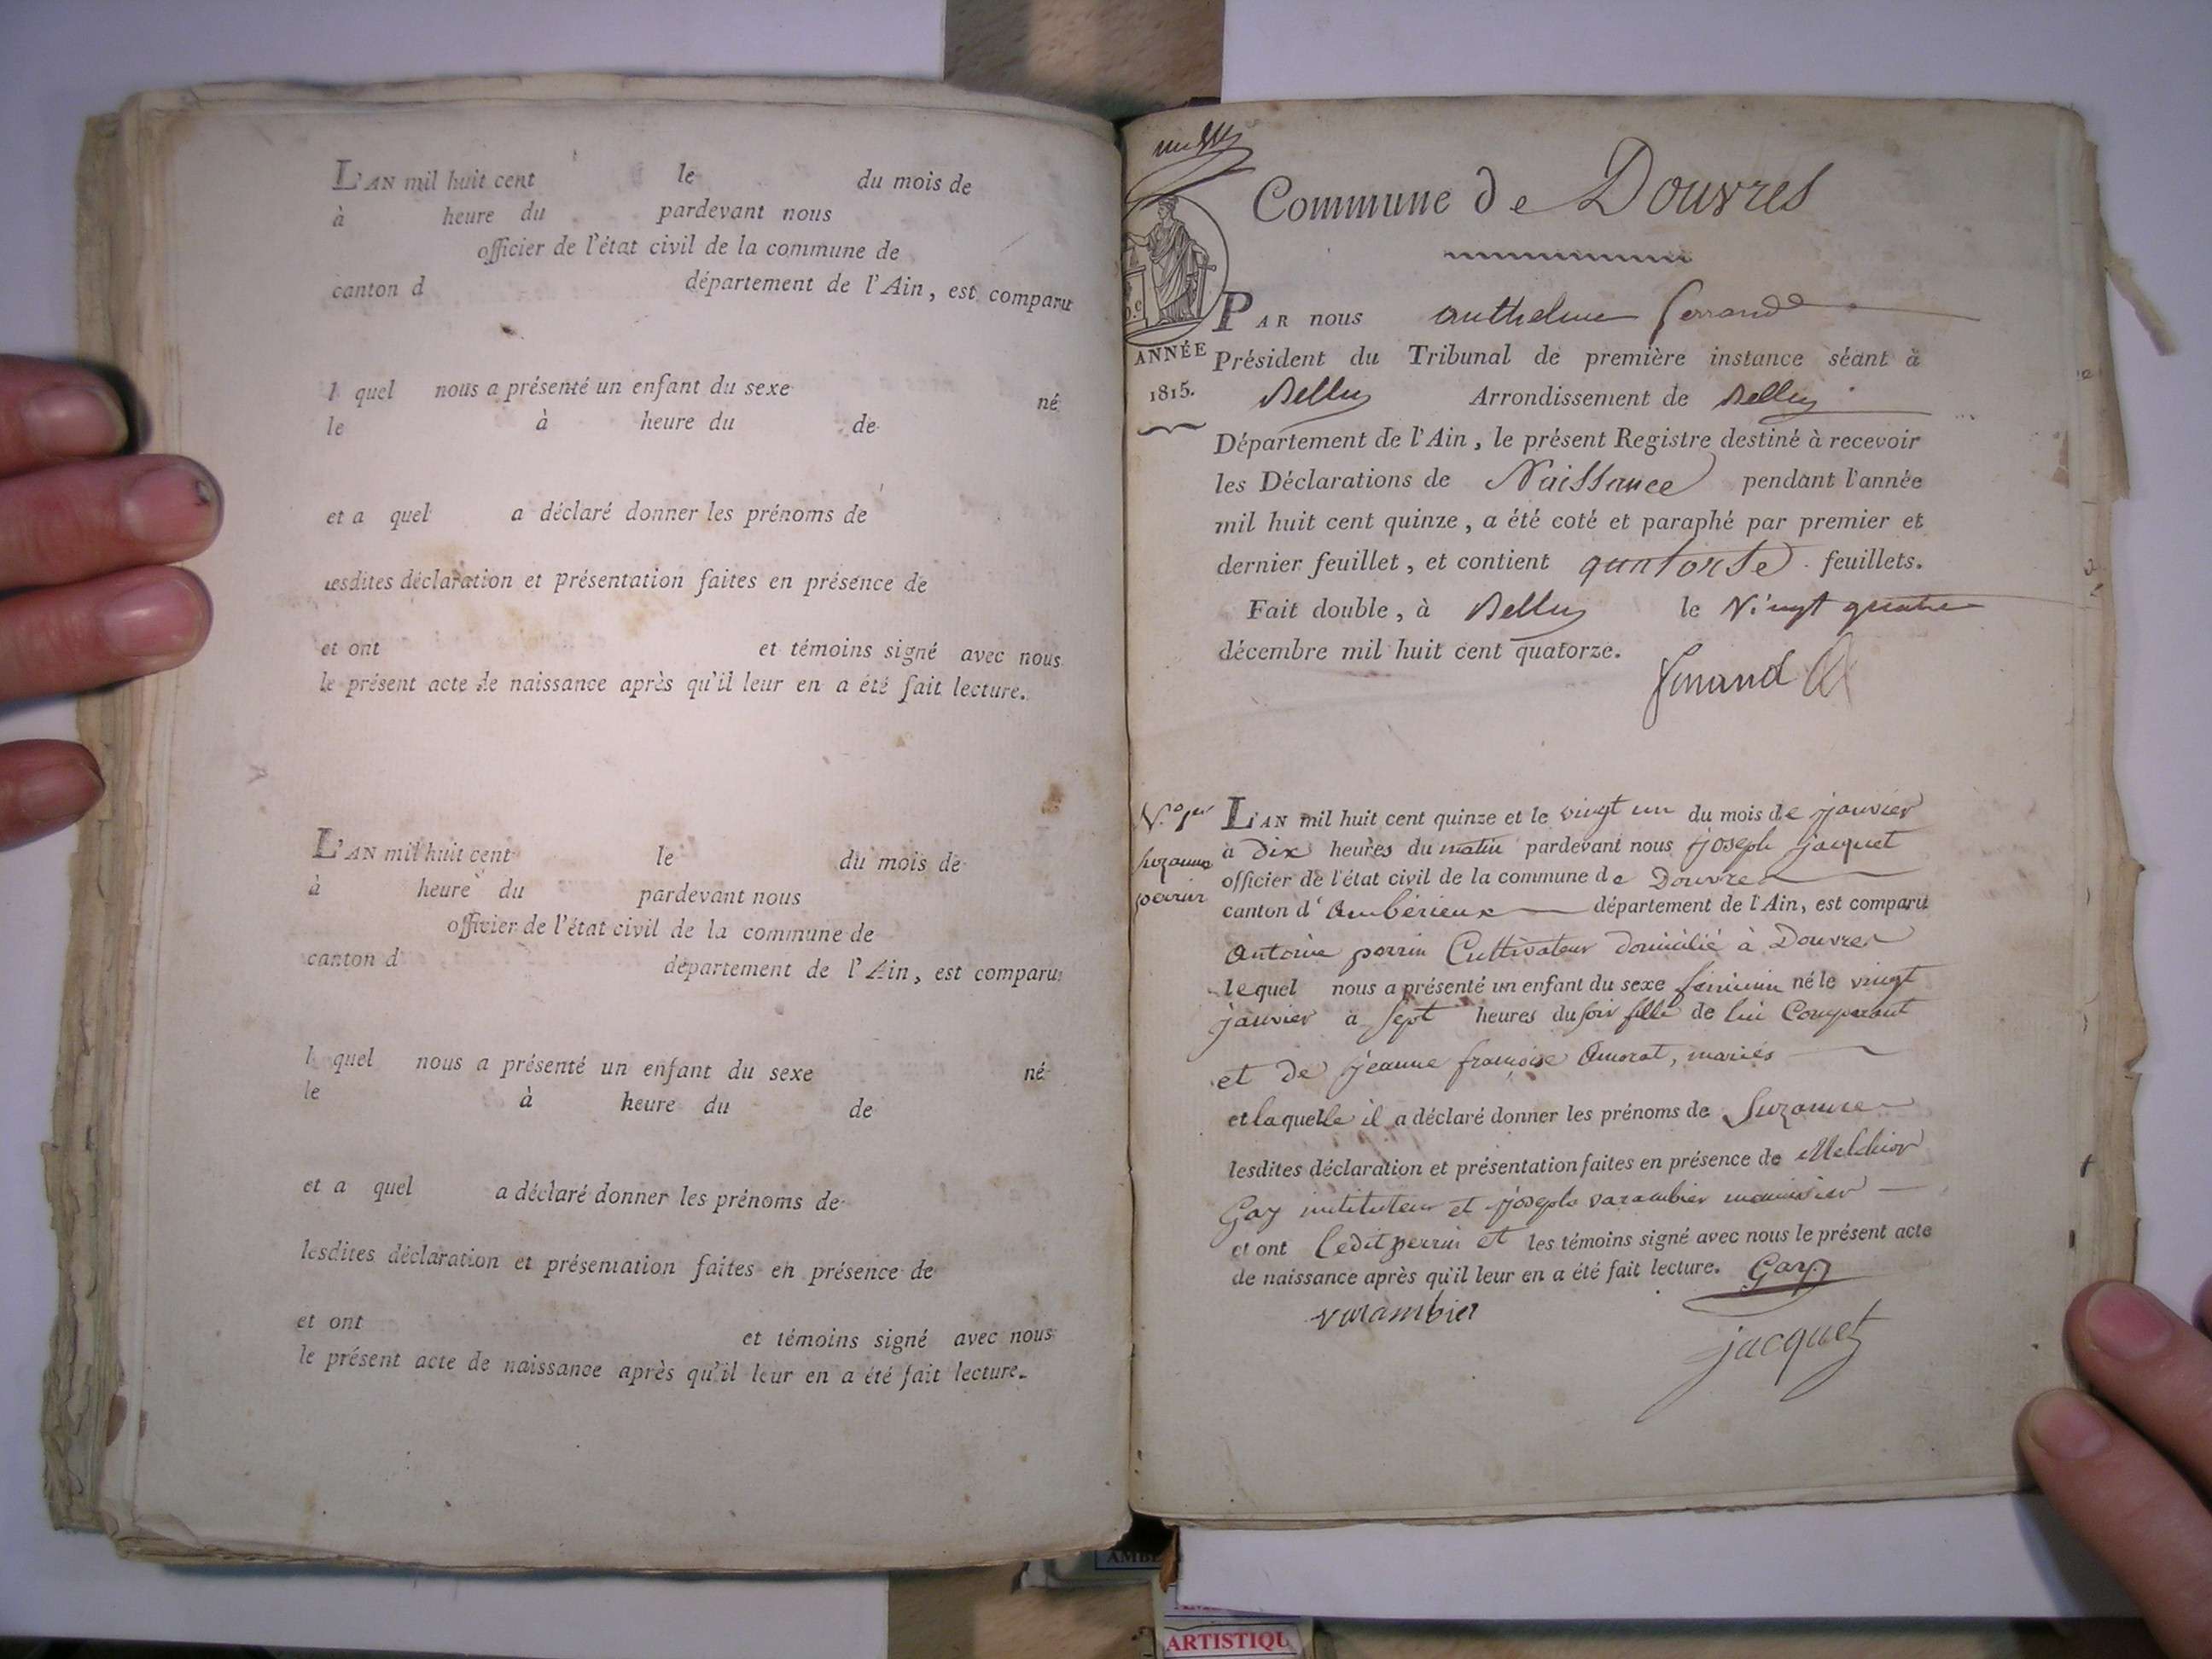 L'AN mil huit cent le du mois de
à heure du pardevant nous
officier de l'état civil de la commune de
canton d département de l'Ain, est comparu
l quel nous a présenté un enfant du sexe né
le à heure du de
et a quel a déclaré donner les prénoms de
lesdites déclaration et présentation faites en présence de
et ont et témoins signé avec nous
le présent acte de naissance après qu'il leur en a été fait lecture.
L'AN mil huit cent le du mois de
à heure du pardevant nous
officier de l'état civil de la commune de
canton d département de l'Ain, est comparu
l quel nous a présenté un enfant du sexe né
le à heure du de
et a quel a déclaré donner les prénoms de
lesdites déclaration et présentation faites en présence de
et ont et témoins signé avec nous
le présent acte de naissance après qu'il leur en a été fait lecture.
Commune de Douvres
ANNÉE
1815.
PAR nous anthelme ferrand
Président du Tribunal de première instance séant à
Belley Arrondissement de Belley
Département de l'Ain, le présent Registre destiné à recevoir
les Déclarations de Naissance pendant l'année
mil huit cent quinze, a été coté et paraphé par premier et
dernier feuillet, et contient quatorse feuillets.
Fait double, à Belley le vingt quatre
décembre mil huit cent quatorze.
ferrand
N.o 1er
Suzanne
perrin
L'AN mil huit cent quinze et le vingt un du mois de janvier
à dix heures du matin pardevant nous joseph jacquet
officier de l'état civil de la commune de Douvres
canton d'Ambérieux département de l'Ain, est comparu
Antoine perrin Cultivateur domicilié à Douvres
lequel nous a présenté un enfant du sexe féminin né le vingt
janvier à sept heures du soir fille de lui Comparant
et de jeanne françoise Amorat, mariés
et laquelle il a déclaré donner les prénoms de Suzanne
lesdites déclaration et présentation faites en présence de Melchior
Gay instituteur et joseph varambier menuisier
et ont ledit perrin et les témoins signé avec nous le présent acte
de naissance après qu'il leur en a été fait lecture. Gay
varambier
jacquet
AMBE
ARTISTIQU